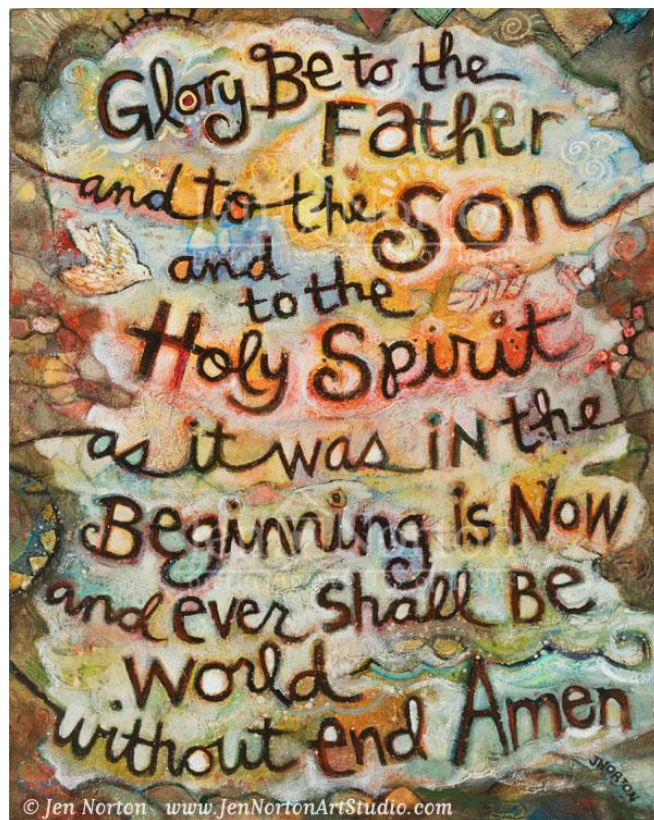 Glory Be to the
Father
and to the Son
and
to the
Holy Spirit
as it was iN the
Beginning is Now
and ever shall Be
World
without end Amen
JNORTON
© Jen Norton www.JenNortonArtStudio.com